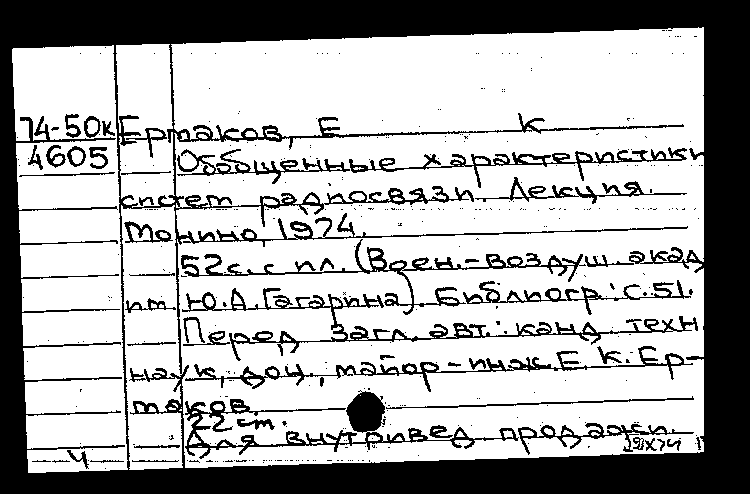 74-50к Ермаков, Е К
4605 Обобщенные характеристики
систем радиосвязи. Лекция.
Монино, 1974.
52с. с ил. (Воен.-воздуш. акад.
им. Ю.А.Гагарина). Библиогр.: с.51.
Перед загл. авт.: канд. техн.
наук, доц., майор-инж. Е. К. Ер-
маков.
22 см.
Для внутривед. продажи.
Ч